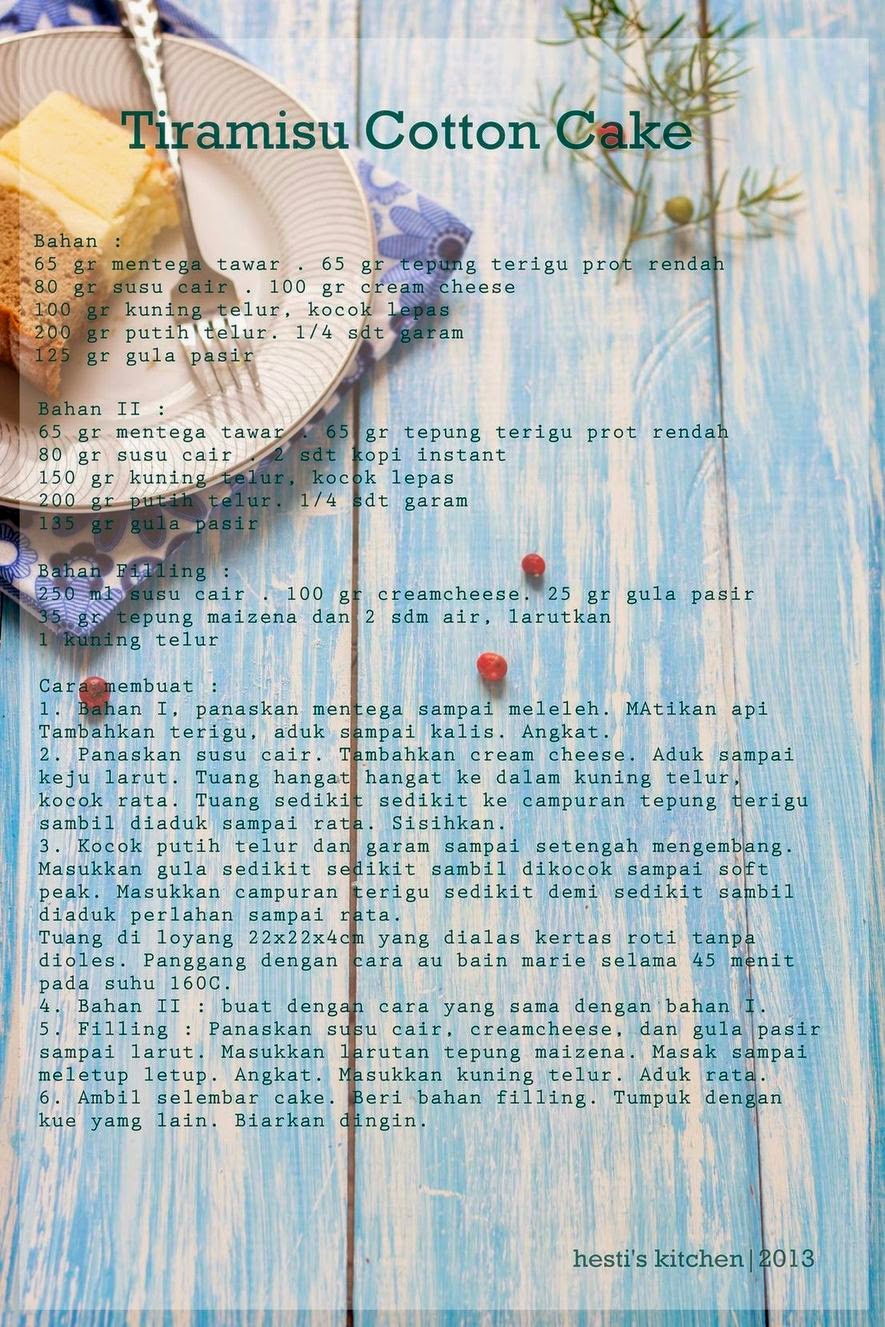 Tiramisu Cotton Cake
Bahan :
65 gr mentega tawar . 65 gr tepung terigu prot rendah
80 gr susu cair . 100 gr cream cheese
100 gr kuning telur, kocok lepas
200 gr putih telur. 1/4 sdt garam
125 gr gula pasir
Bahan II :
65 gr mentega tawar . 65 gr tepung terigu prot rendah
80 gr susu cair . 2 sdt kopi instant
150 gr kuning telur, kocok lepas
200 gr putih telur. 1/4 sdt garam
135 gr gula pasir
Bahan Filling :
250 ml susu cair . 100 gr creamcheese. 25 gr gula pasir
35 gr tepung maizena dan 2 sdm air, larutkan
1 kuning telur
Cara membuat :
1. Bahan I, panaskan mentega sampai meleleh. MAtikan api
Tambahkan terigu, aduk sampai kalis. Angkat.
2. Panaskan susu cair. Tambahkan cream cheese. Aduk sampai
keju larut. Tuang hangat hangat ke dalam kuning telur,
kocok rata. Tuang sedikit sedikit ke campuran tepung terigu
sambil diaduk sampai rata. Sisihkan.
3. Kocok putih telur dan garam sampai setengah mengembang.
Masukkan gula sedikit sedikit sambil dikocok sampai soft
peak. Masukkan campuran terigu sedikit demi sedikit sambil
diaduk perlahan sampai rata.
Tuang di loyang 22x22x4cm yang dialas kertas roti tanpa
dioles. Panggang dengan cara au bain marie selama 45 menit
pada suhu 160C.
4. Bahan II : buat dengan cara yang sama dengan bahan I.
5. Filling : Panaskan susu cair, creamcheese, dan gula pasir
sampai larut. Masukkan larutan tepung maizena. Masak sampai
meletup letup. Angkat. Masukkan kuning telur. Aduk rata.
6. Ambil selembar cake. Beri bahan filling. Tumpuk dengan
kue yamg lain. Biarkan dingin.
hesti's kitchen|2013